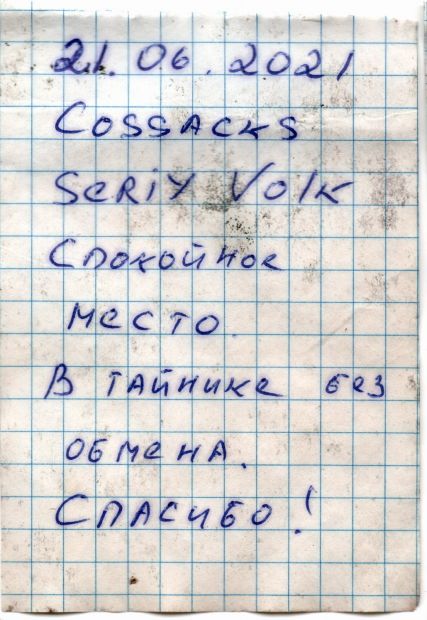 21.06.2021
COSSACKS
SeRiY Volk
Спокойное
место.
В тайнике без
обмена.
Спасибо!